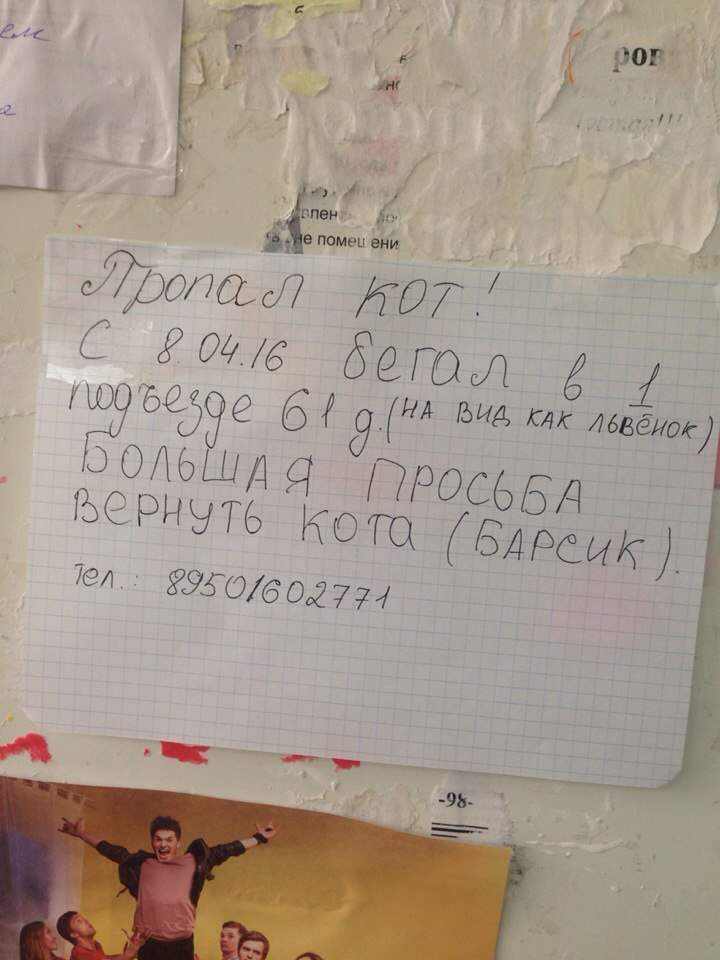 ем
а
ров
не помещени
Пропал кот!
С 8.04.16 бегал в 1
подъезде 61 д. (на вид как львёнок)
БОЛЬШАЯ ПРОСЬБА
ВЕРНУТЬ КОТА (БАРСИК).
тел.: 89501602771
-98-